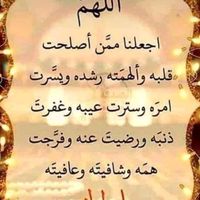 اللهم
اجعلنا ممَّن أصلحت
قلبه وألهمَته رشده ويسَّرت
امرَه وسترت عيبه وغفرتَ
ذنبَه ورضيتَ عنه وفرَّجت
همَه وشافيتَه وعافيتَه